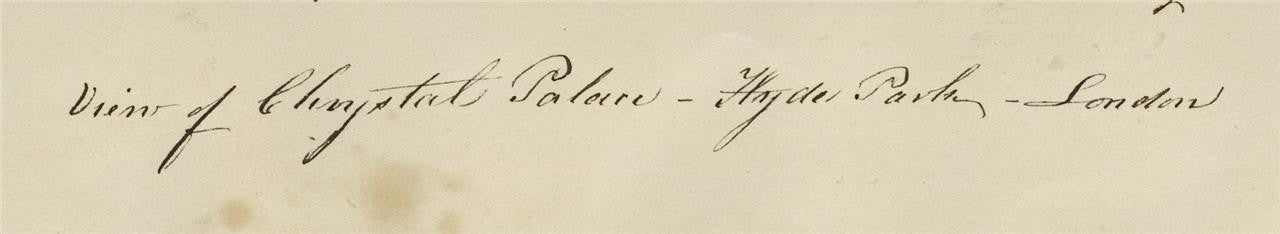 View of Chrystal Palace - Hyde Park - London